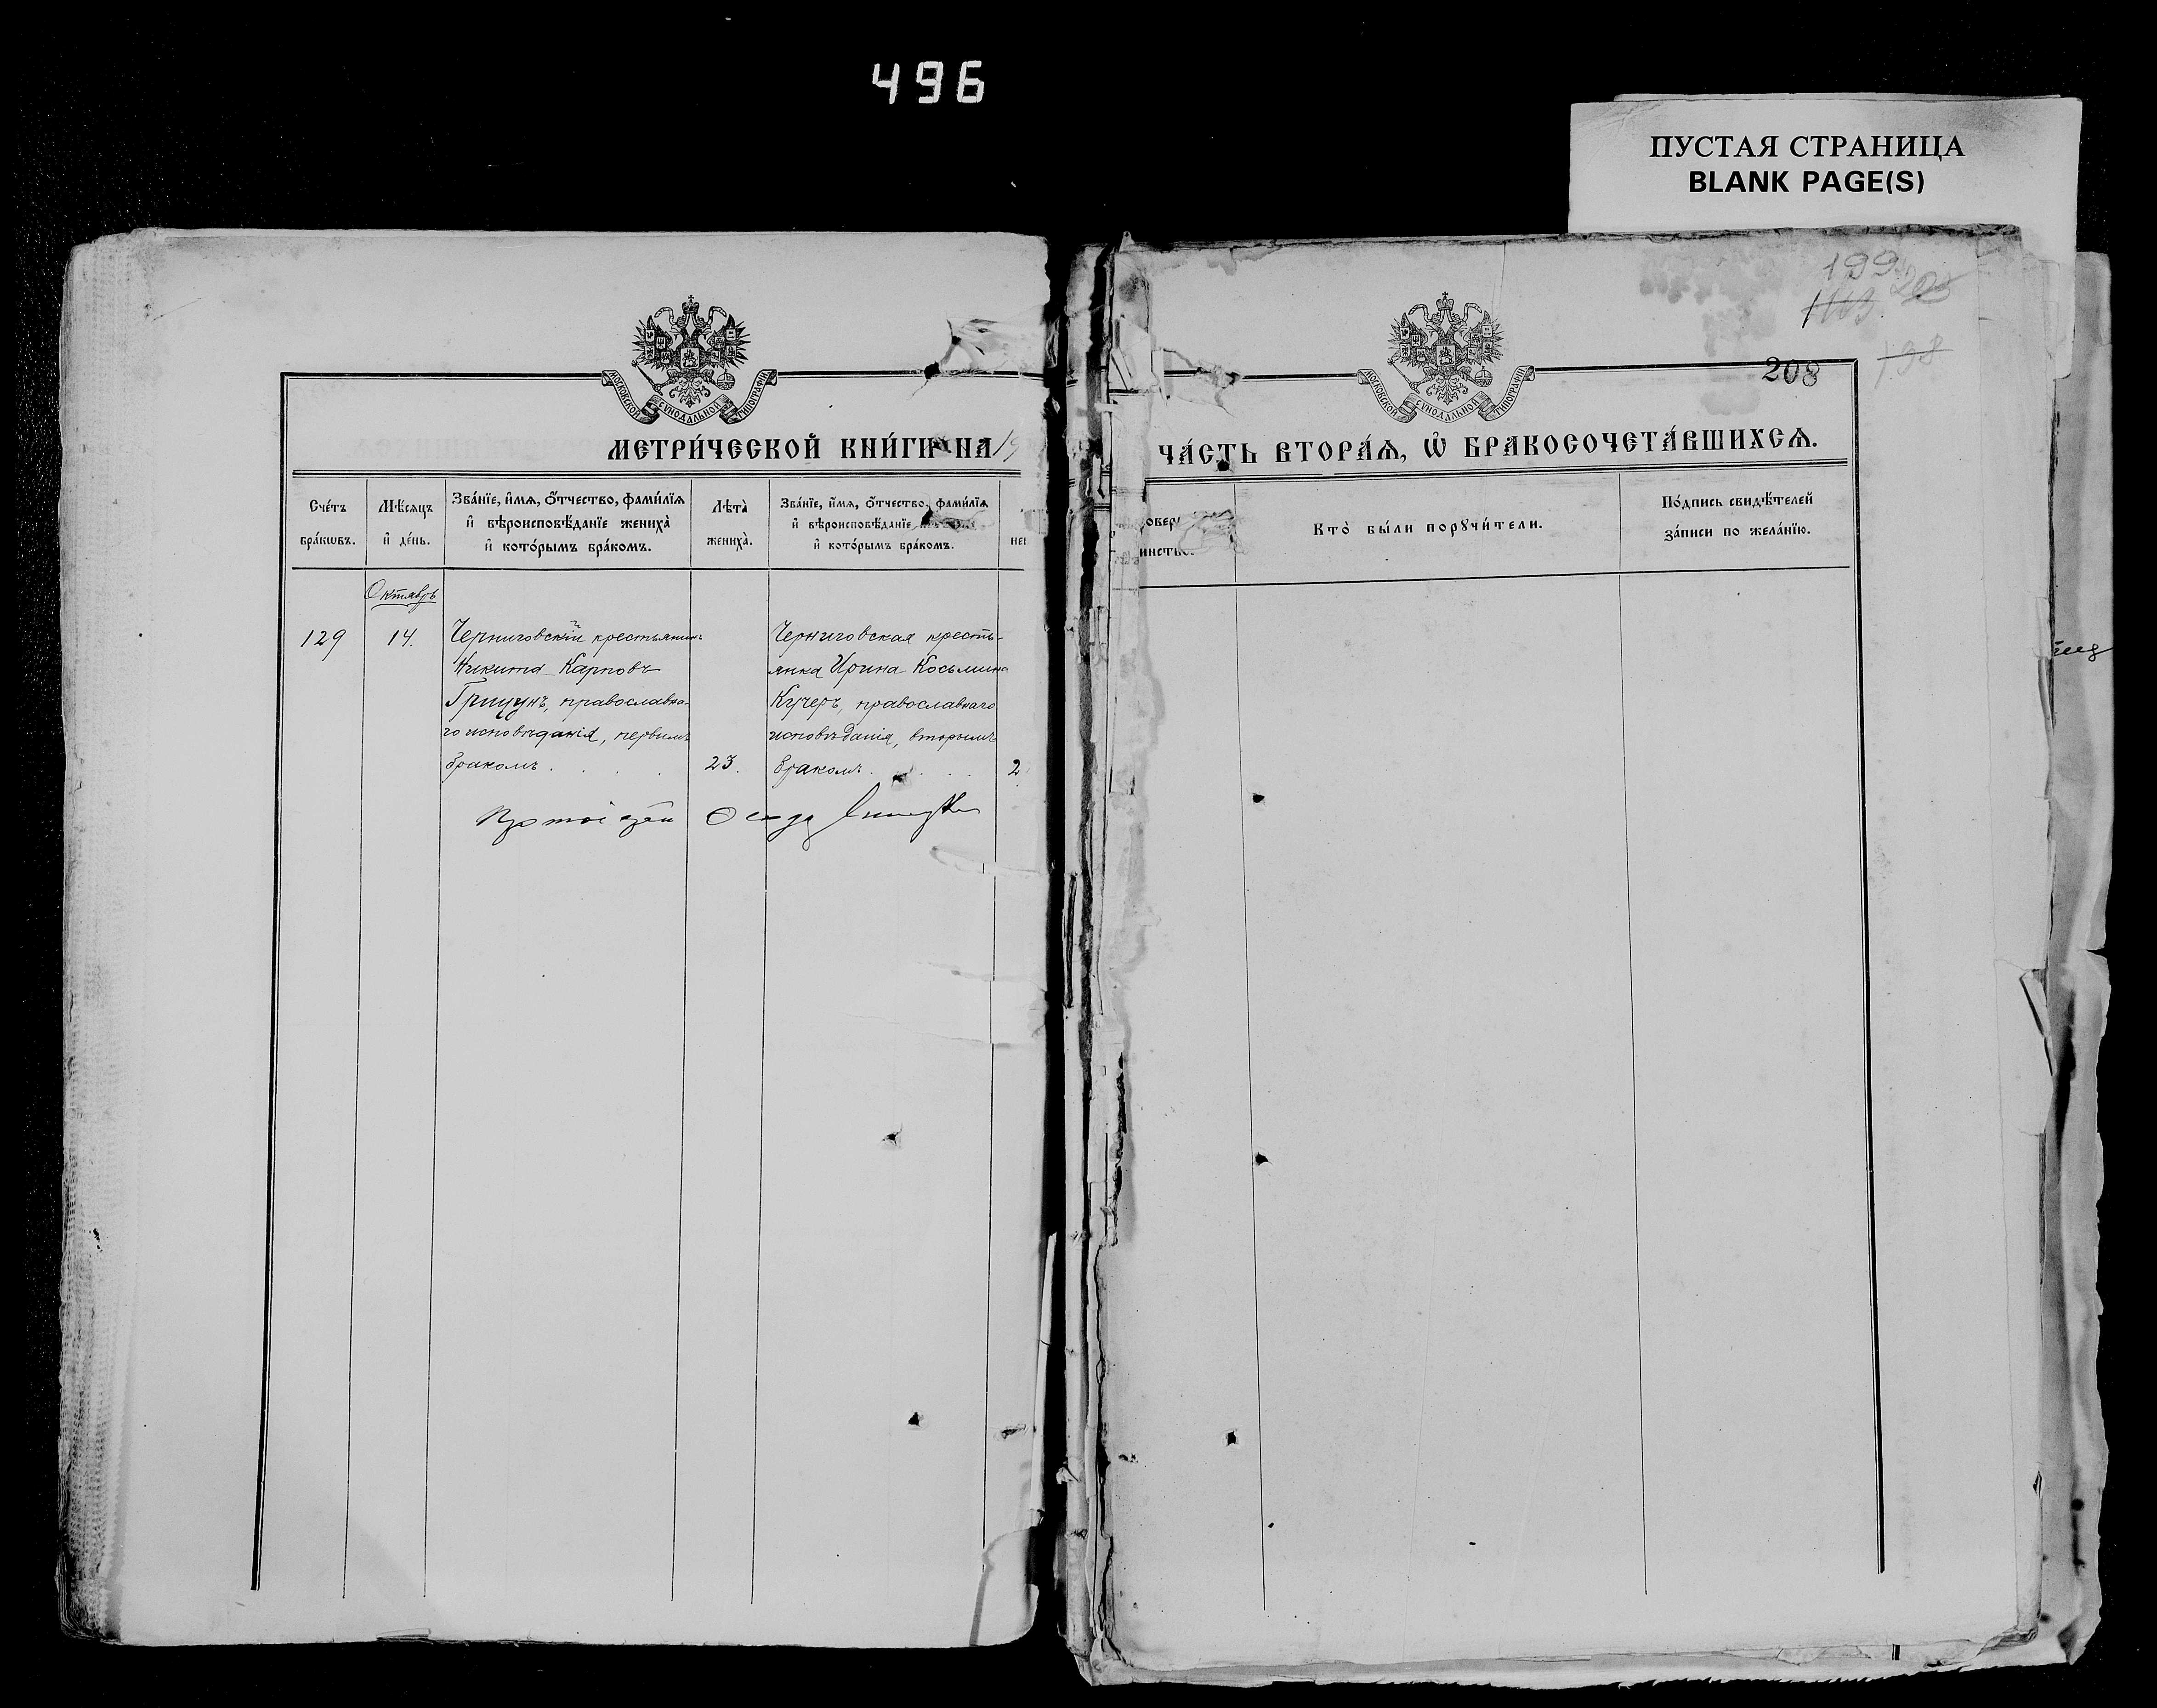 496
ПУСТАЯ СТРАНИЦА
BLANK PAGE(S)
199
203
198
208
МОСКОВСКОЙ СѴНОДАЛЬНОЙ ТИПОГРАФІИ
МЕТРИ́ЧЕСКОЙ КНИ́ГИ НА 19
Сче́тъ бра́кѡвъ.
Мѣ́сяцъ и҆ де́нь.
Зва́нїе, и҆́мѧ, ѻ҆́тчество, фами́лїѧ
и҆ вѣроисповѣ́данїе жениха̀
и҆ кото́рымъ бра́комъ.
Лѣта̀ жениха̀.
Зва́нїе, и҆́мѧ, ѻ҆́тчество, фами́лїѧ
и҆ вѣроисповѣ́данїе
и҆ кото́рымъ бра́комъ.
Октябрь
129
14.
Черниговскій крестьянинъ
Никита Карповъ
Грицунъ, православна-
го исповѣданія, первымъ
бракомъ . . . .
23.
Черниговская кресть-
янка Ирина Косьмина
Кучеръ, православнаго
исповѣданія, вторымъ
бракомъ . . . .
2
Протоіерей
МОСКОВСКОЙ СѴНОДАЛЬНОЙ ТИПОГРАФІИ
ЧА́СТЬ ВТОРА́Ѧ, Ѡ҆ БРАКОСОЧЕТА́ВШИХСѦ.
Кто̀ бы́ли порꙋчи́тели.
По́дпись свидѣ́телей
за́писи по жела́нїю.